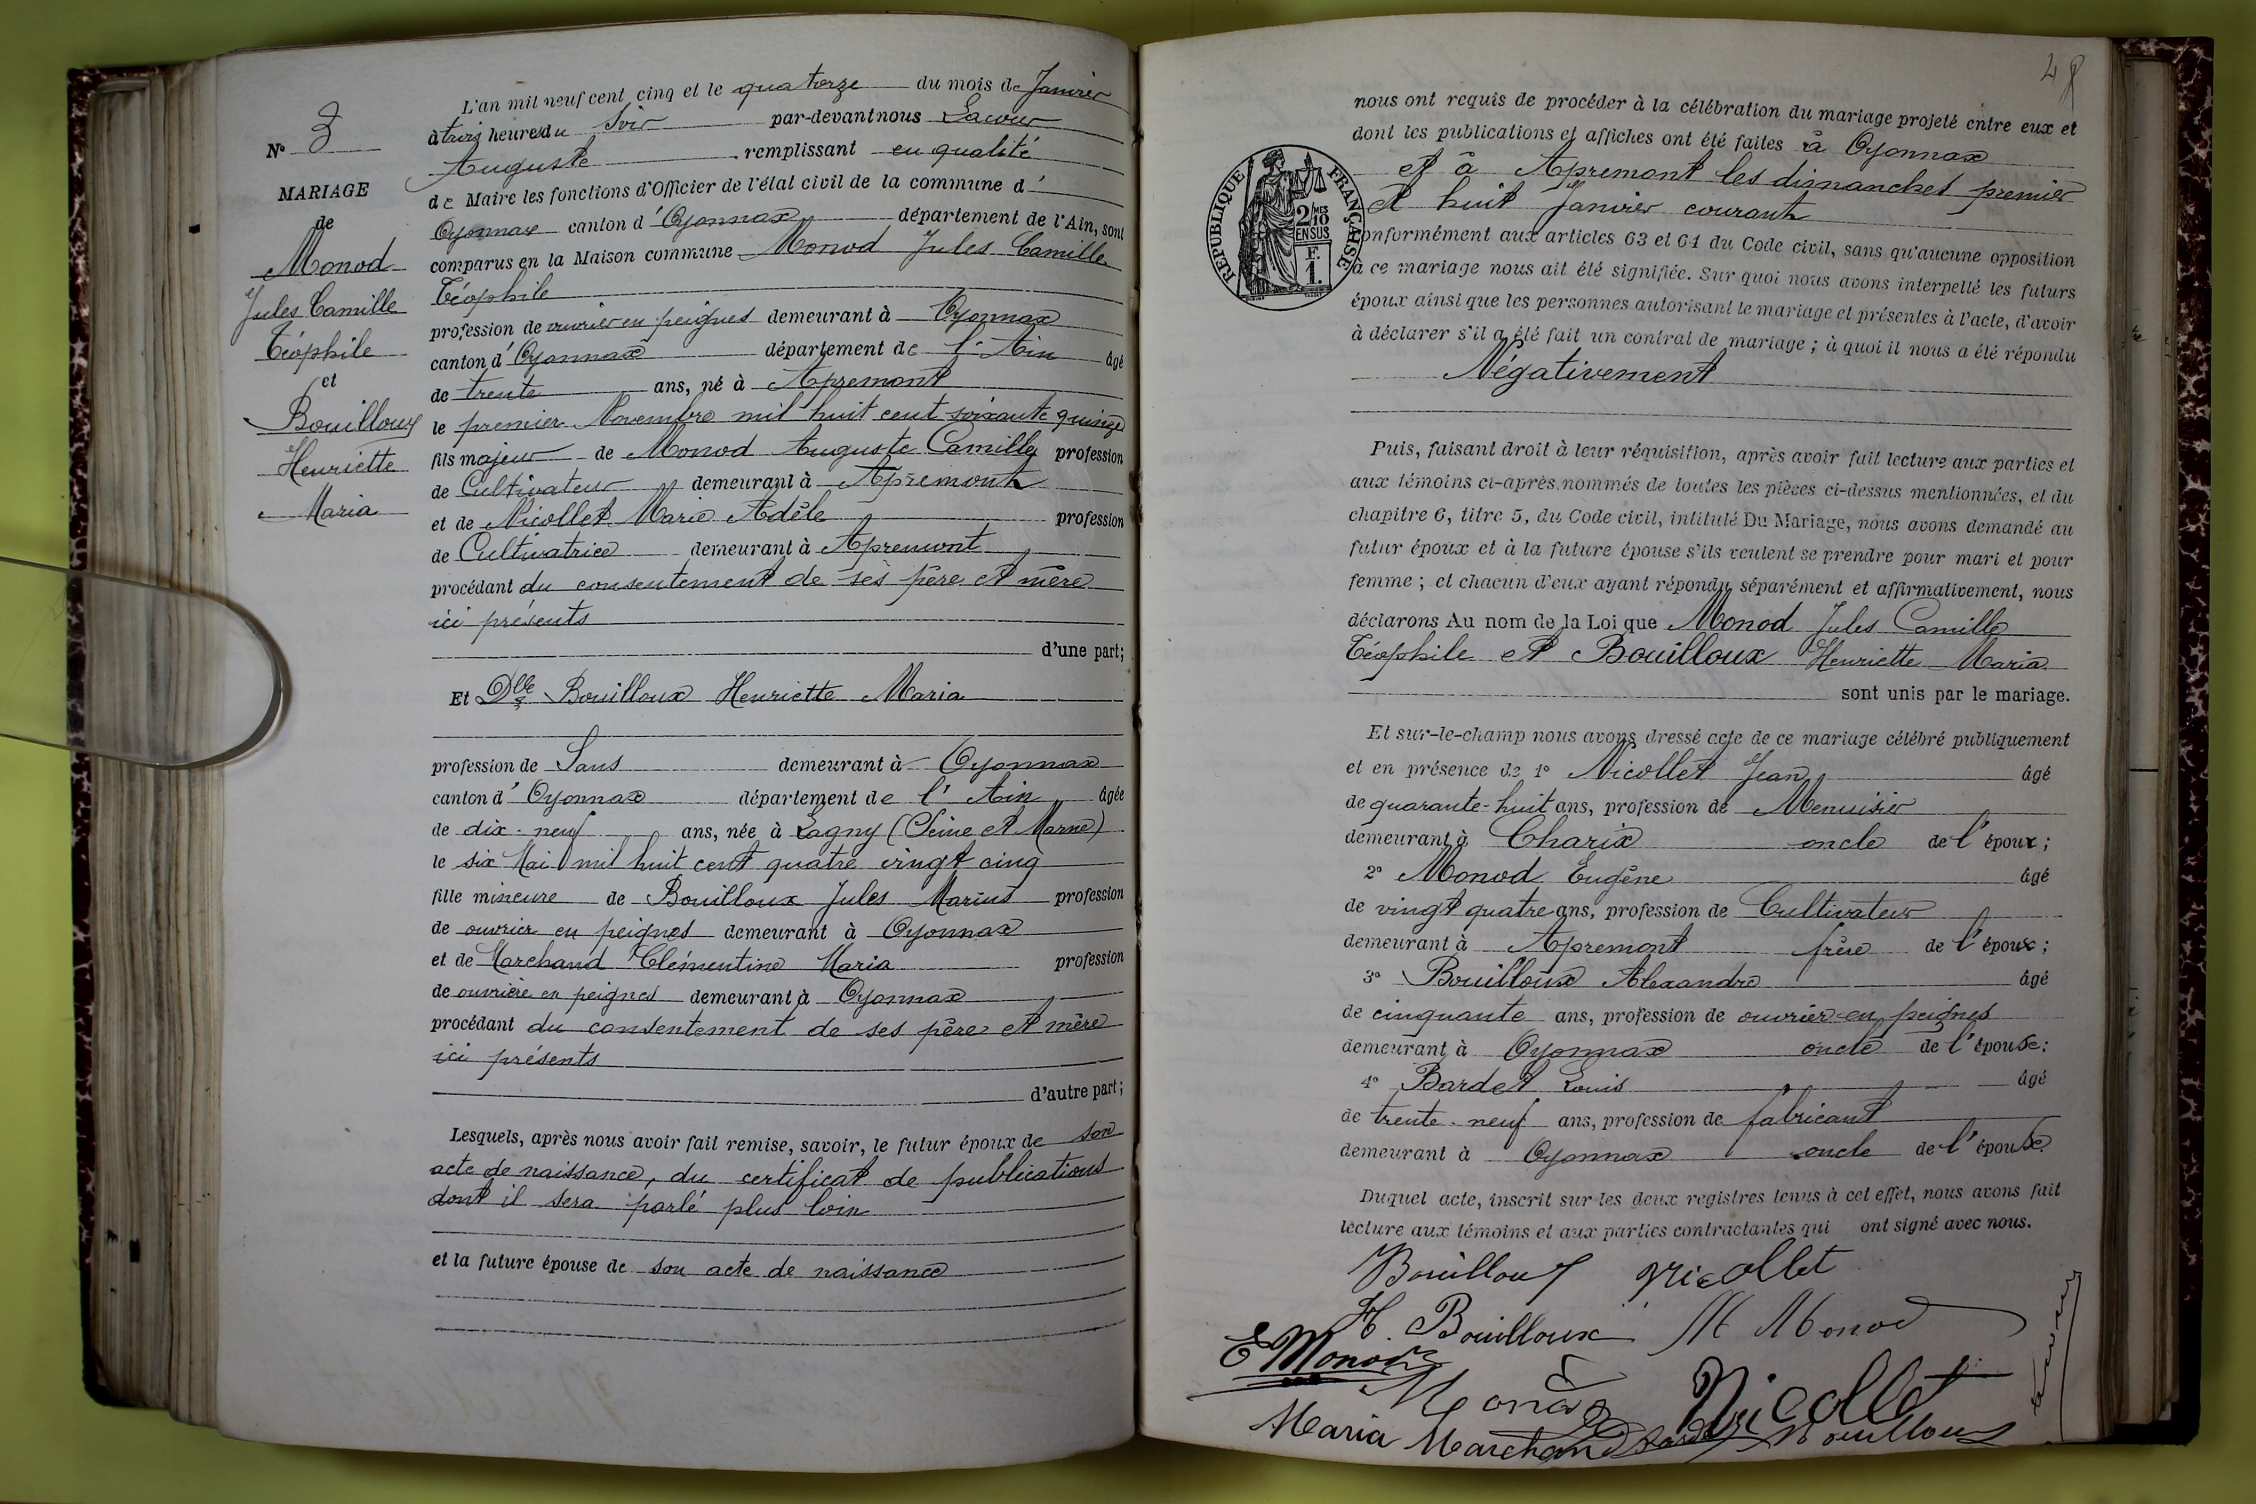 N° 3
MARIAGE
de
Monod
Jules Camille
Téophile
et
Bouilloux
Henriette
Maria
L'an mil neuf cent cinq et le quatorze du mois de Janvier
à trois heures du Soir par-devant nous Lacour
Auguste remplissant en qualité
de Maire les fonctions d'Officier de l'état civil de la commune d'
Oyonnax canton d'Oyonnax département de l'Ain, sont
comparus en la Maison commune Monod Jules Camille
Téophile
profession de ouvrier en peignes demeurant à Oyonnax
canton d'Oyonnax département de l'Ain âgé
de trente ans, né à Apremont
le premier Novembre mil huit cent soixante quinze
fils majeur de Monod Auguste Camille profession
de Cultivateur demeurant à Apremont
et de Nicollet Marie Adèle profession
de Cultivatrice demeurant à Apremont
procédant du consentement de ses père et mère
ici présents
d'une part;
Et Dlle Bouilloux Henriette Maria
profession de Sans demeurant à Oyonnax
canton d'Oyonnax département de l'Ain âgée
de dix-neuf ans, née à Lagny (Seine et Marne)
le six Mai mil huit cent quatre vingt cinq
fille mineure de Bouilloux Jules Marius profession
de ouvrier en peignes demeurant à Oyonnax
et de Marchand Clémentine Maria profession
de ouvrière en peignes demeurant à Oyonnax
procédant du consentement de ses père et mère
ici présents
d'autre part;
Lesquels, après nous avoir fait remise, savoir, le futur époux de son
acte de naissance, du certificat de publications
dont il sera parlé plus loin
et la future épouse de son acte de naissance
48
nous ont requis de procéder à la célébration du mariage projeté entre eux et
dont les publications et affiches ont été faites à Oyonnax
et à Apremont les dimanches premier
et huit Janvier courant
RÉPUBLIQUE FRANÇAISE
2/10MES
EN SUS
F.
1.
conformément aux articles 63 et 64 du Code civil, sans qu'aucune opposition
à ce mariage nous ait été signifiée. Sur quoi nous avons interpellé les futurs
époux ainsi que les personnes autorisant le mariage et présentes à l'acte, d'avoir
à déclarer s'il a été fait un contrat de mariage ; à quoi il nous a été répondu
Négativement
Puis, faisant droit à leur réquisition, après avoir fait lecture aux parties et
aux témoins ci-après nommés de toutes les pièces ci-dessus mentionnées, et du
chapitre 6, titre 5, du Code civil, intitulé Du Mariage, nous avons demandé au
futur époux et à la future épouse s'ils veulent se prendre pour mari et pour
femme ; et chacun d'eux ayant répondu séparément et affirmativement, nous
déclarons Au nom de la Loi que Monod Jules Camille
Téophile et Bouilloux Henriette Maria
sont unis par le mariage.
Et sur-le-champ nous avons dressé acte de ce mariage célébré publiquement
et en présence de 1° Nicollet Jean âgé
de quarante-huit ans, profession de Menuisier
demeurant à Charix oncle de l'époux;
2° Monod Eugène âgé
de vingt quatre ans, profession de Cultivateur
demeurant à Apremont frère de l'époux;
3° Bouilloux Alexandre âgé
de cinquante ans, profession de ouvrier en peignes
demeurant à Oyonnax oncle de l'épouse:
4° Bardet Louis âgé
de trente-neuf ans, profession de fabricant
demeurant à Oyonnax oncle de l'épouse
Duquel acte, inscrit sur les deux registres tenus à cet effet, nous avons fait
lecture aux témoins et aux parties contractantes qui ont signé avec nous.
Bouilloux Nicollet
H. Bouilloux M Monod
E Monod
Monod Nicollet
Maria Marchand Bardet Bouilloux
Lacour